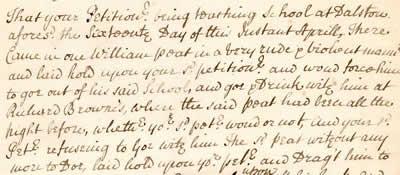 That your Petitionr. being teaching School at Dalston
aforesd. the Sixteenth Day of this Instant Aprill, There
Came in one William peat in a very rude & violent mannr
and laid hold upon your sd. petitionr. and wou'd force him
to goe out of his said School, and goe & Drink with him at
Richard Brown's, where the said peat had been all the
night before, whethr. yor. sd. petr. woud or not, And your sd.
Petr. refusing to Goe with him The sd. peat without any
more to Doe, laid hold upon yor. petr. and Dragt him to
upon